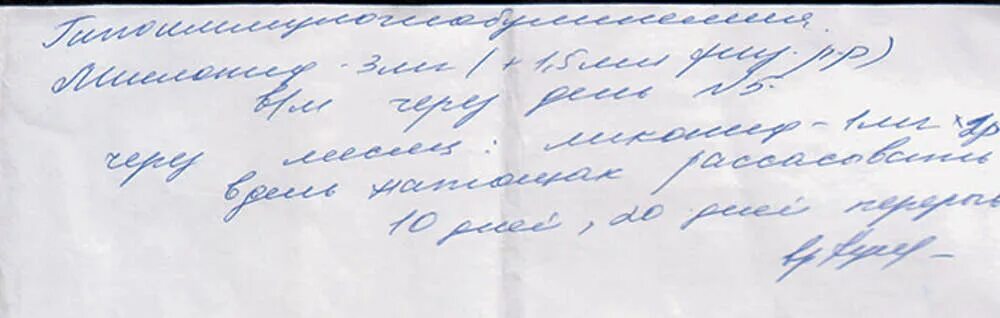 Гипоиммуноглобулинемия
- 3мг (+ 1,5 мл физ. р-р)
в/м через день №5.
через месяц: ликопид - 1мг × 2р
в день натощак рассасовать
10 дней, 20 дней перерыв